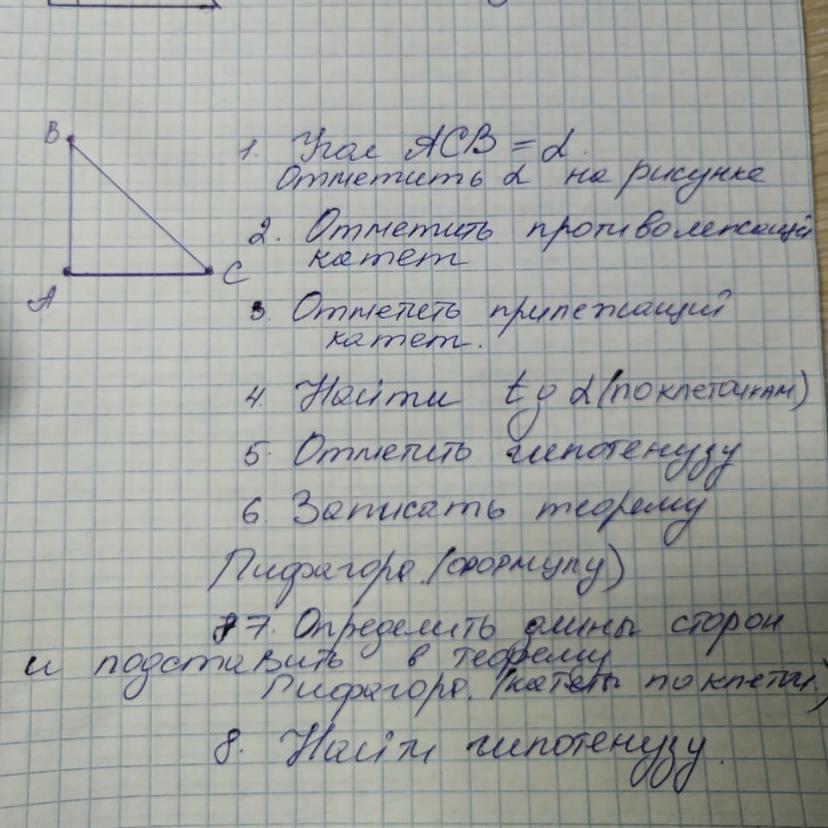 B
A
C
1. Угол ACB = α.
Отметить α на рисунке
2. Отметить противолежащий
катет
3. Отметить прилежащий
катет.
4. Найти tg α (по клеточкам)
5. Отметить гипотенузу
6. Записать теорему
Пифагора (формулу)
7. Определить длины сторон
и подставить в теорему
Пифагора. (катеты по клеточ.)
8. Найти гипотенузу.